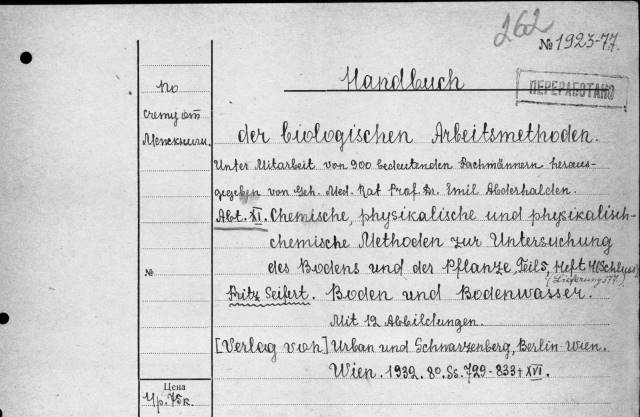 262
№ 1923-77.
Handbuch
ПЕРЕРАБОТАНО
По
счету от
Межкниги.
der biologischen Arbeitsmethoden.
Unter Mitarbeit von 900 bedeutenden Fachmännern heraus-
gegeben von Geh. Med. Rat Prof. Dr. Emil Abderhalden.
Abt. XI. Chemische, physikalische und physikalisch-
chemische Methoden zur Untersuchung
des Bodens und der Pflanze, Teil 5, Heft 4 (Schluss)
(Lieferung 377.)
№
Fritz Seifert. Boden und Bodenwasser.
Mit 12 Abbildungen.
[Verlag von] Urban und Schwarzenberg, Berlin-Wien.
Wien. 1932. 8°. Ss. 729-833+XVI.
Цена
4р. 75к.